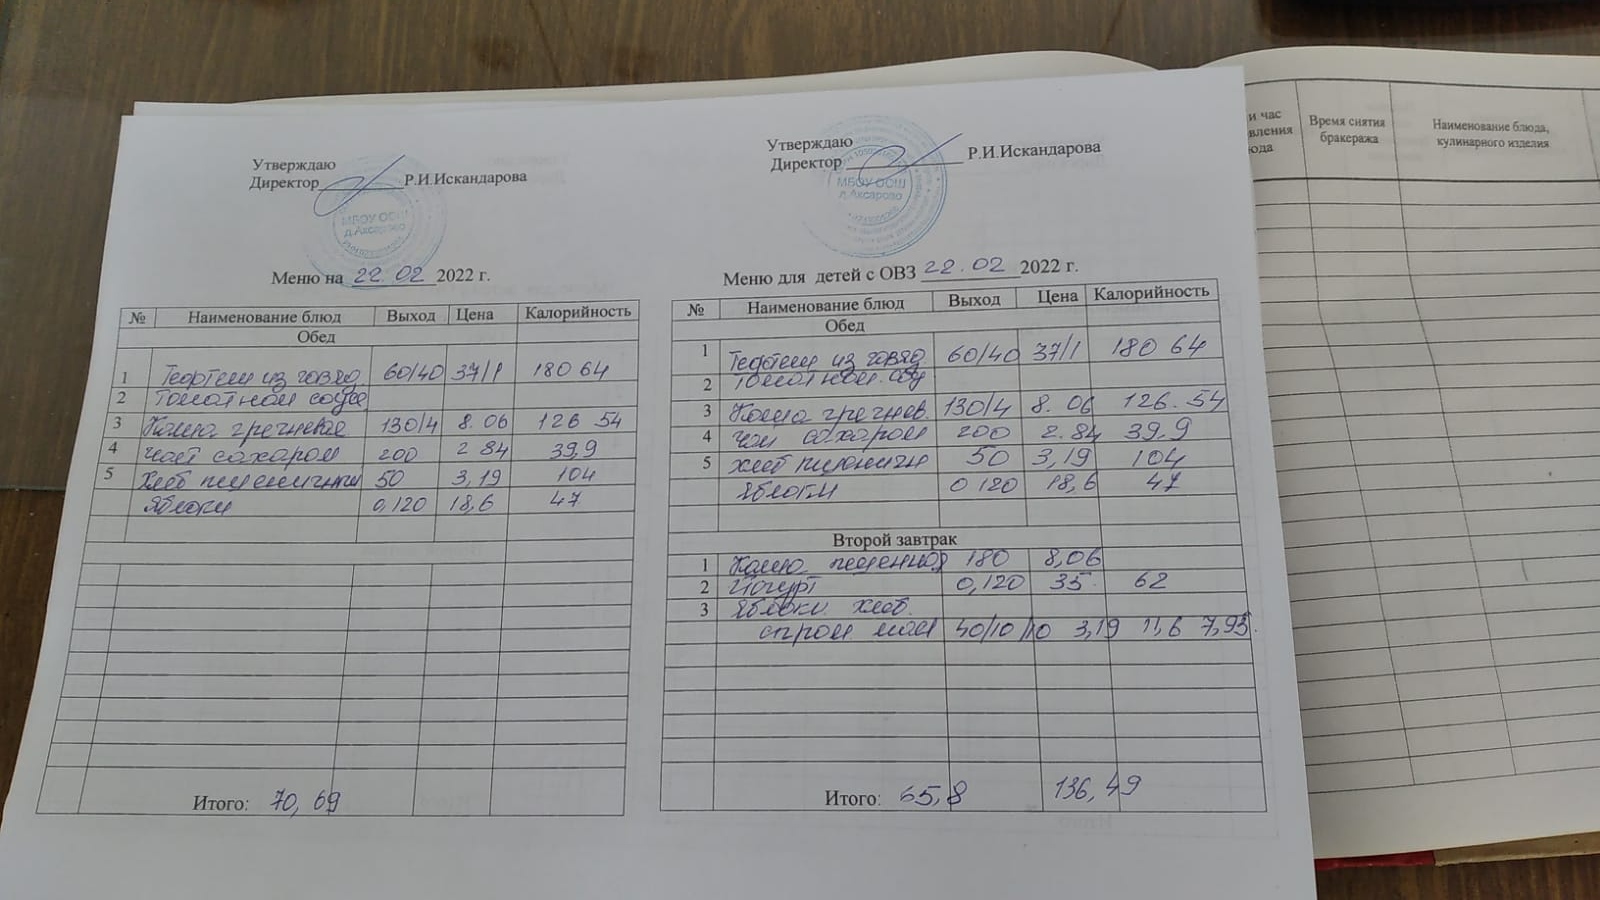 Утверждаю
Директор Р.И.Искандарова
МБОУ ООШ
д.Ахсарово
Меню на 22.02 2022 г.
№ Наименование блюд Выход Цена Калорийность
Обед
1 Тефтели из говяд. 60/40 37/1 180 64
2 Томатном соусе
3 Каша гречневая 130/4 8.06 126 54
4 Чай с сахаром 200 2 84 39,9
5 Хлеб пшеничный 50 3,19 104
Яблоки 0,120 18,6 47
Итого: 70,69
Утверждаю
Директор Р.И.Искандарова
МБОУ ООШ
д.Ахсарово
Меню для детей с ОВЗ 22.02 2022 г.
№ Наименование блюд Выход Цена Калорийность
Обед
1 Тефтели из говяд. 60/40 37/1 180 64
2 Томатном. соу
3 Каша гречнев. 130/4 8.06 126.54
4 Чай сахаром 200 2.84 39.9
5 Хлеб пшеничн 50 3,19 104
Яблоки 0 120 18,6 47
Второй завтрак
1 Каша пшенная 180 8,06
2 Йогурт 0,120 35 62
3 Яблоки хлеб.
40/10/10 3,19 11,6 7,95.
Итого: 65,8 136,49
и час
Время снятия
бракеража
Наименование блюда,
кулинарного изделия